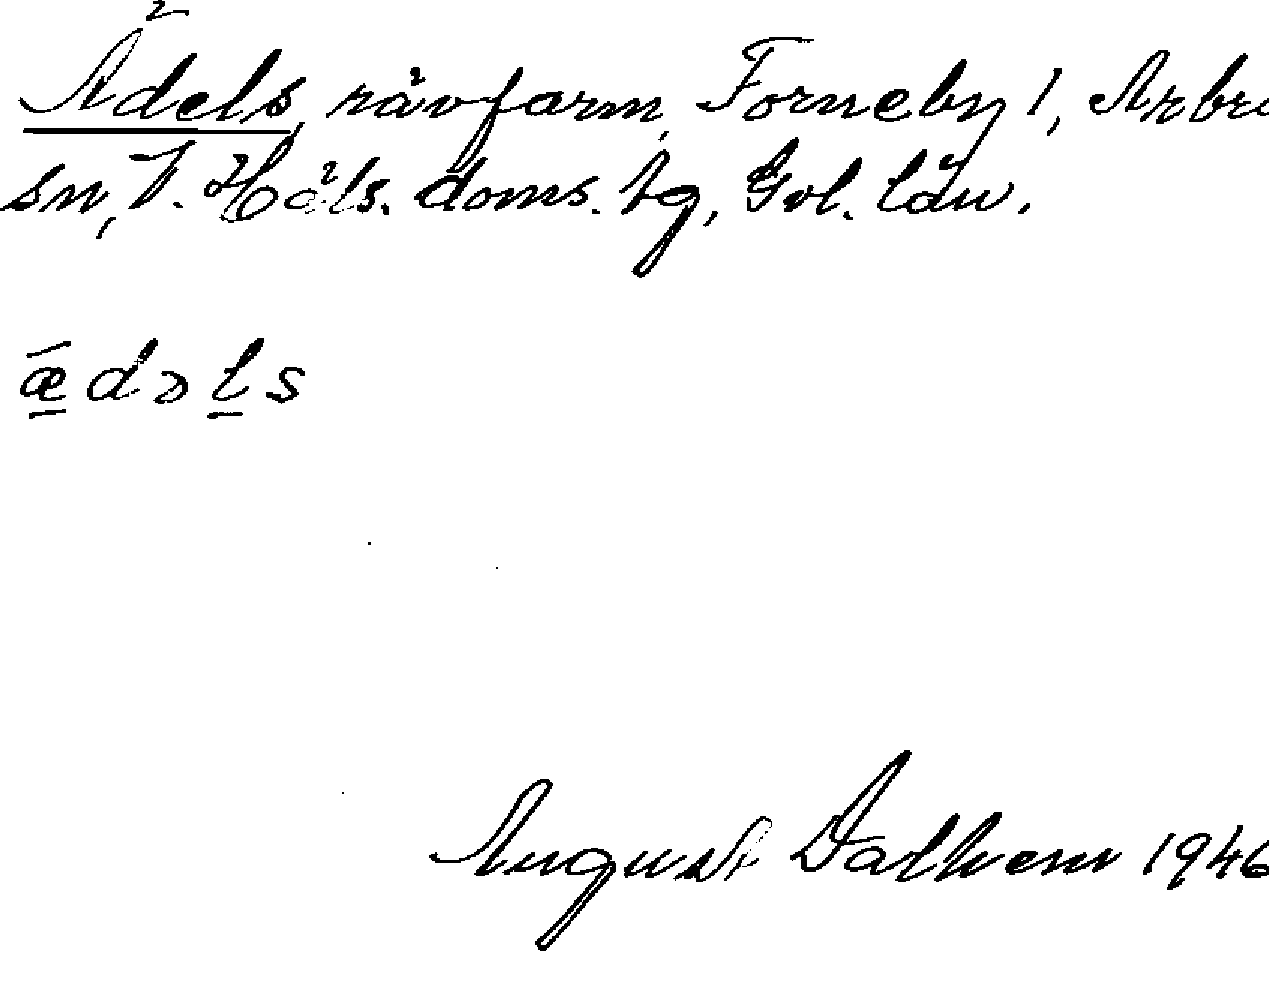 Ädels, rävfarm, Forneby 1, Arbrå
sn, V. Häls. doms. tg, Gvl. län.
ǣdəls
August Dalhem 1946